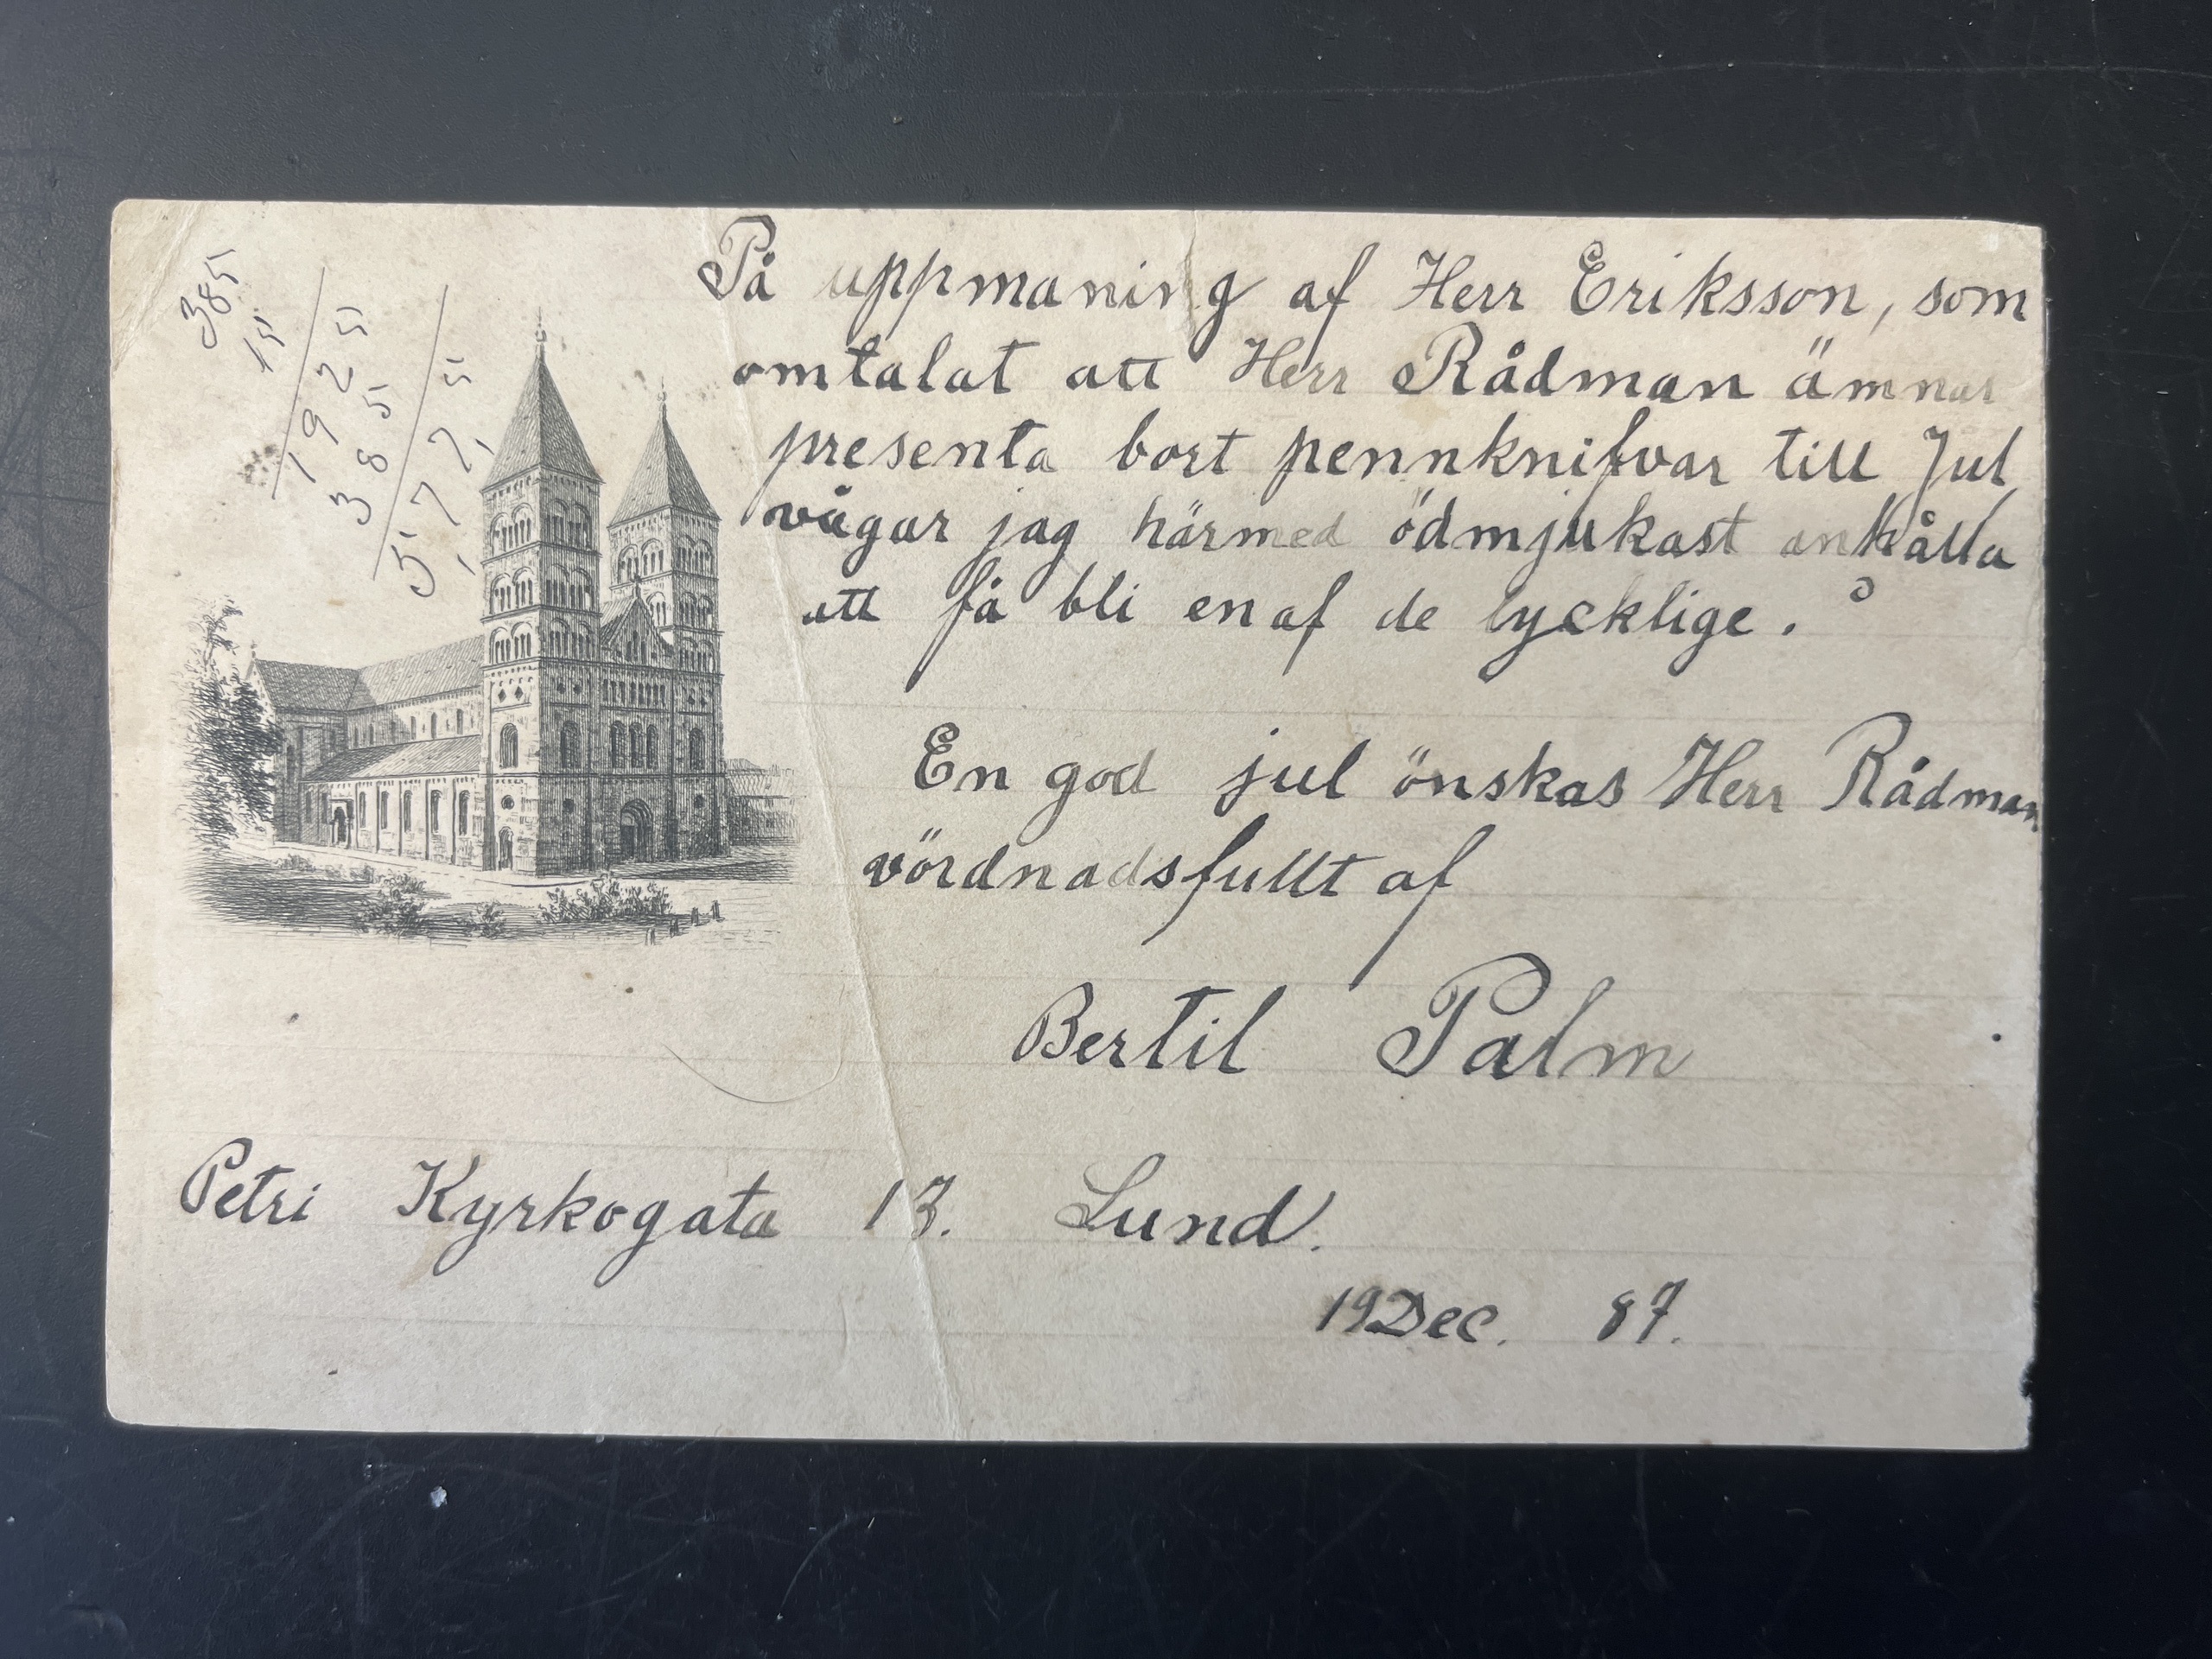 385
15
1925
385
5775
På uppmaning af Herr Eriksson, som
omtalat att Herr Rådman ämnar
presenta bort pennknifvar till Jul
vågar jag härmed ödmjukast anhålla
att få bli en af de lycklige.
En god jul önskas Herr Rådman
vördnadsfullt af
Bertil Palm
Petri Kyrkogata 13. Lund.
19 Dec. 87.